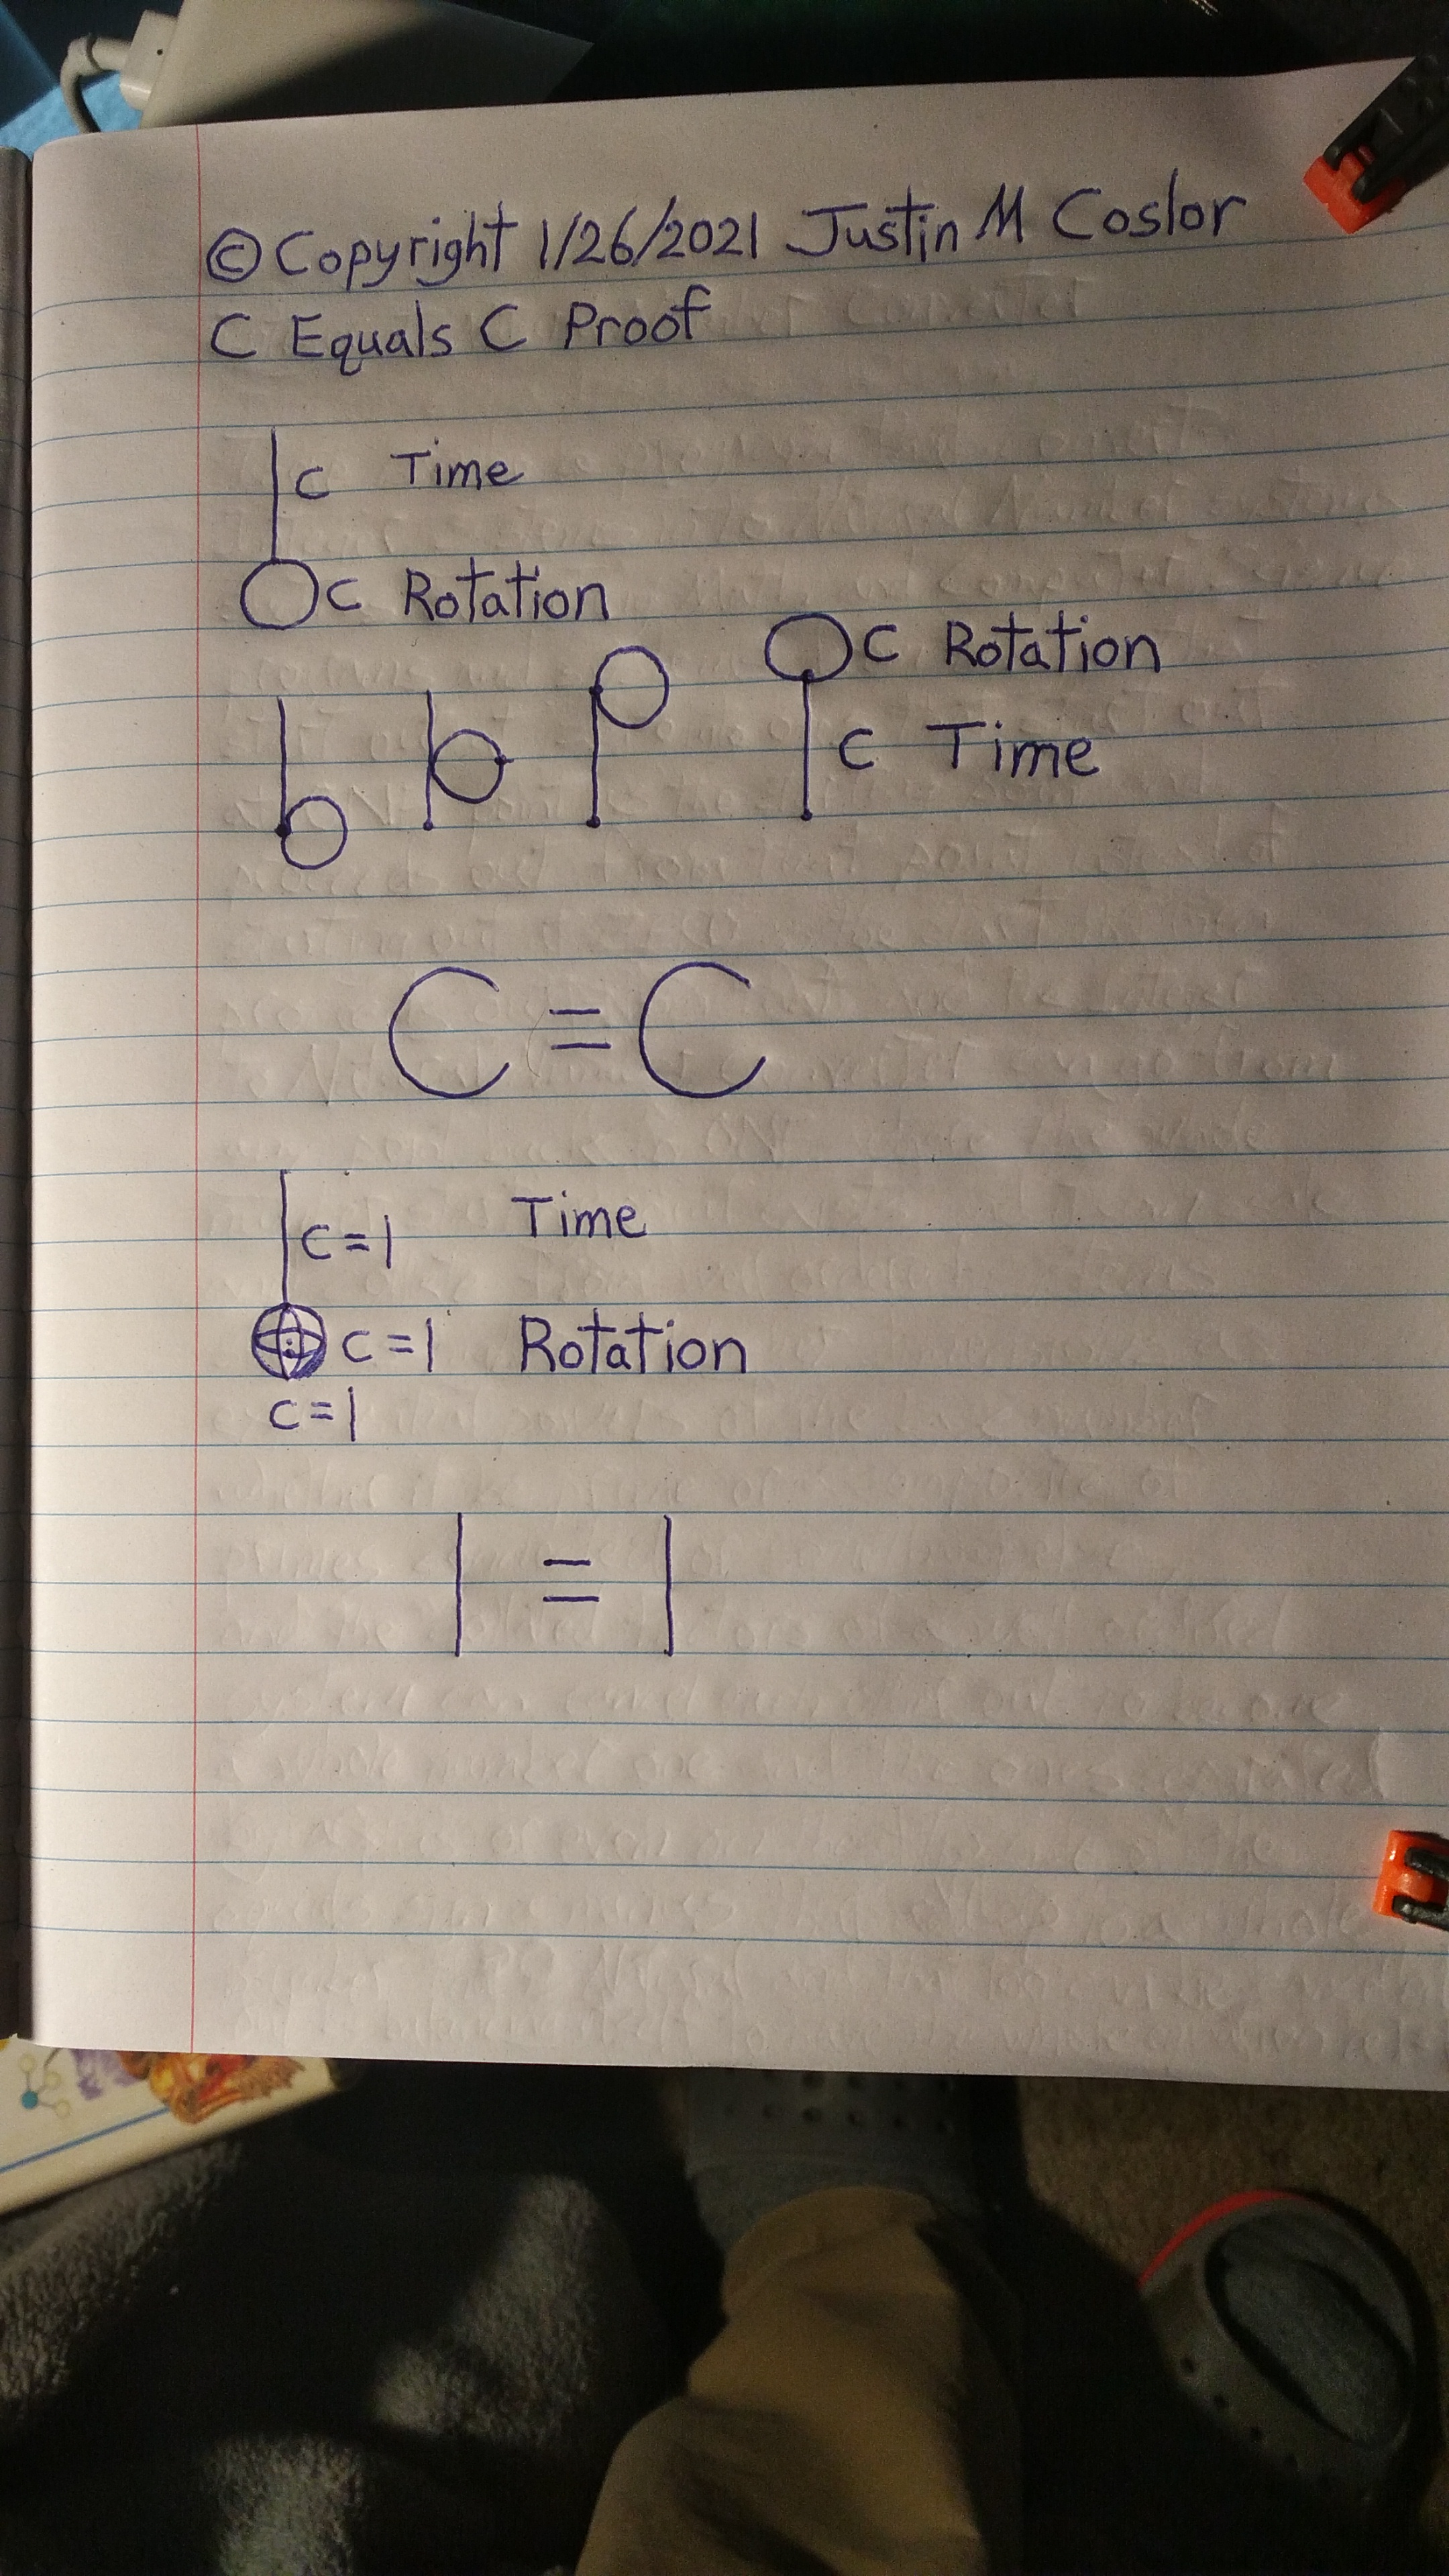 © Copyright 1/26/2021 Justin M Coslor
C Equals C Proof
C Time
C Rotation
C Rotation
C Time
C = C
C = 1 Time
C = 1 Rotation
C = 1
1 = 1